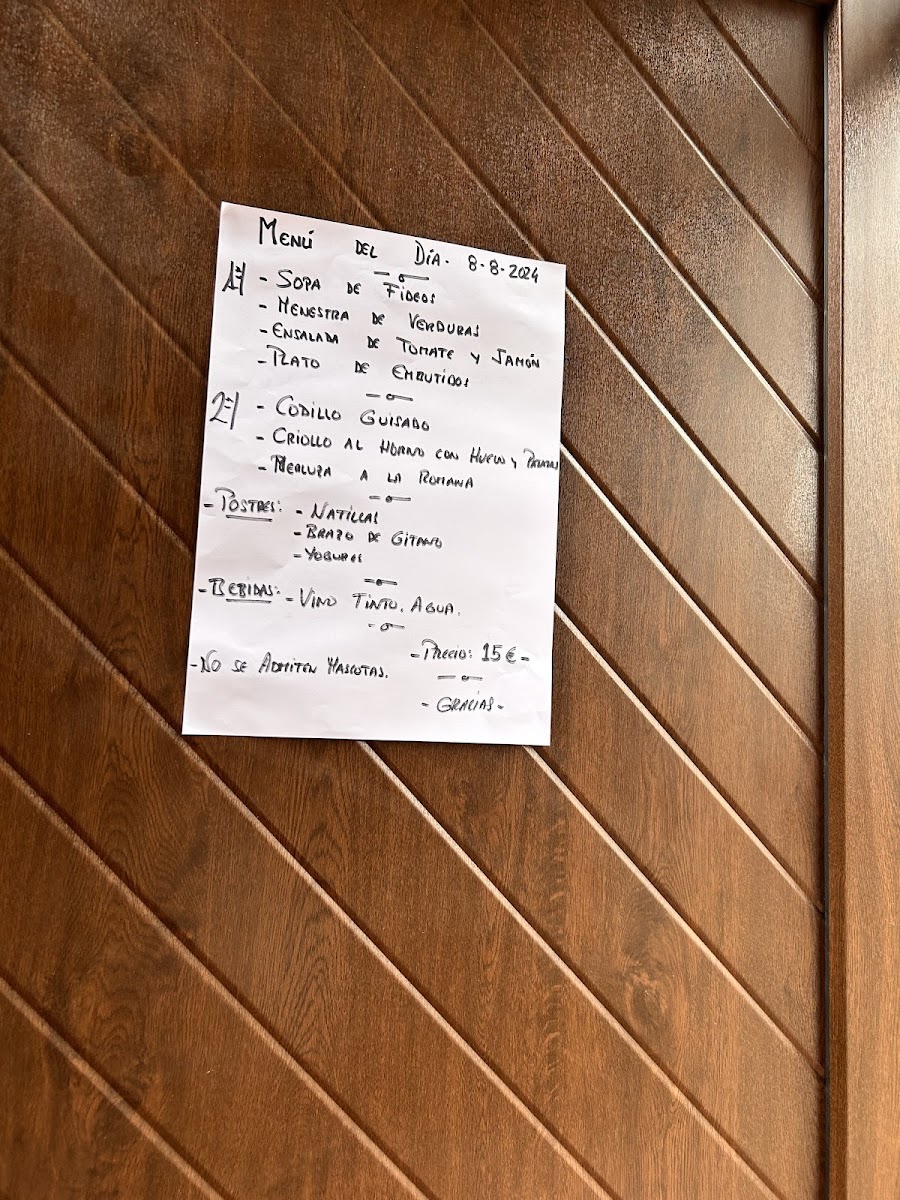 MENÚ DEL DÍA. 8-8-2024
1º/ - SOPA DE FIDEOS
- MENESTRA DE VERDURAS
- ENSALADA DE TOMATE Y JAMÓN
- PLATO DE EMBUTIDOS
2º/ - CODILLO GUISADO
- CRIOLLO AL HORNO CON HUEVO Y PATATAS
- MERLUZA A LA ROMANA
- POSTRES: - NATILLAS
- BRAZO DE GITANO
- YOGURES
- BEBIDAS: - VINO TINTO. AGUA.
- PRECIO: 15 € -
- NO SE ADMITEN MASCOTAS.
- GRACIAS -